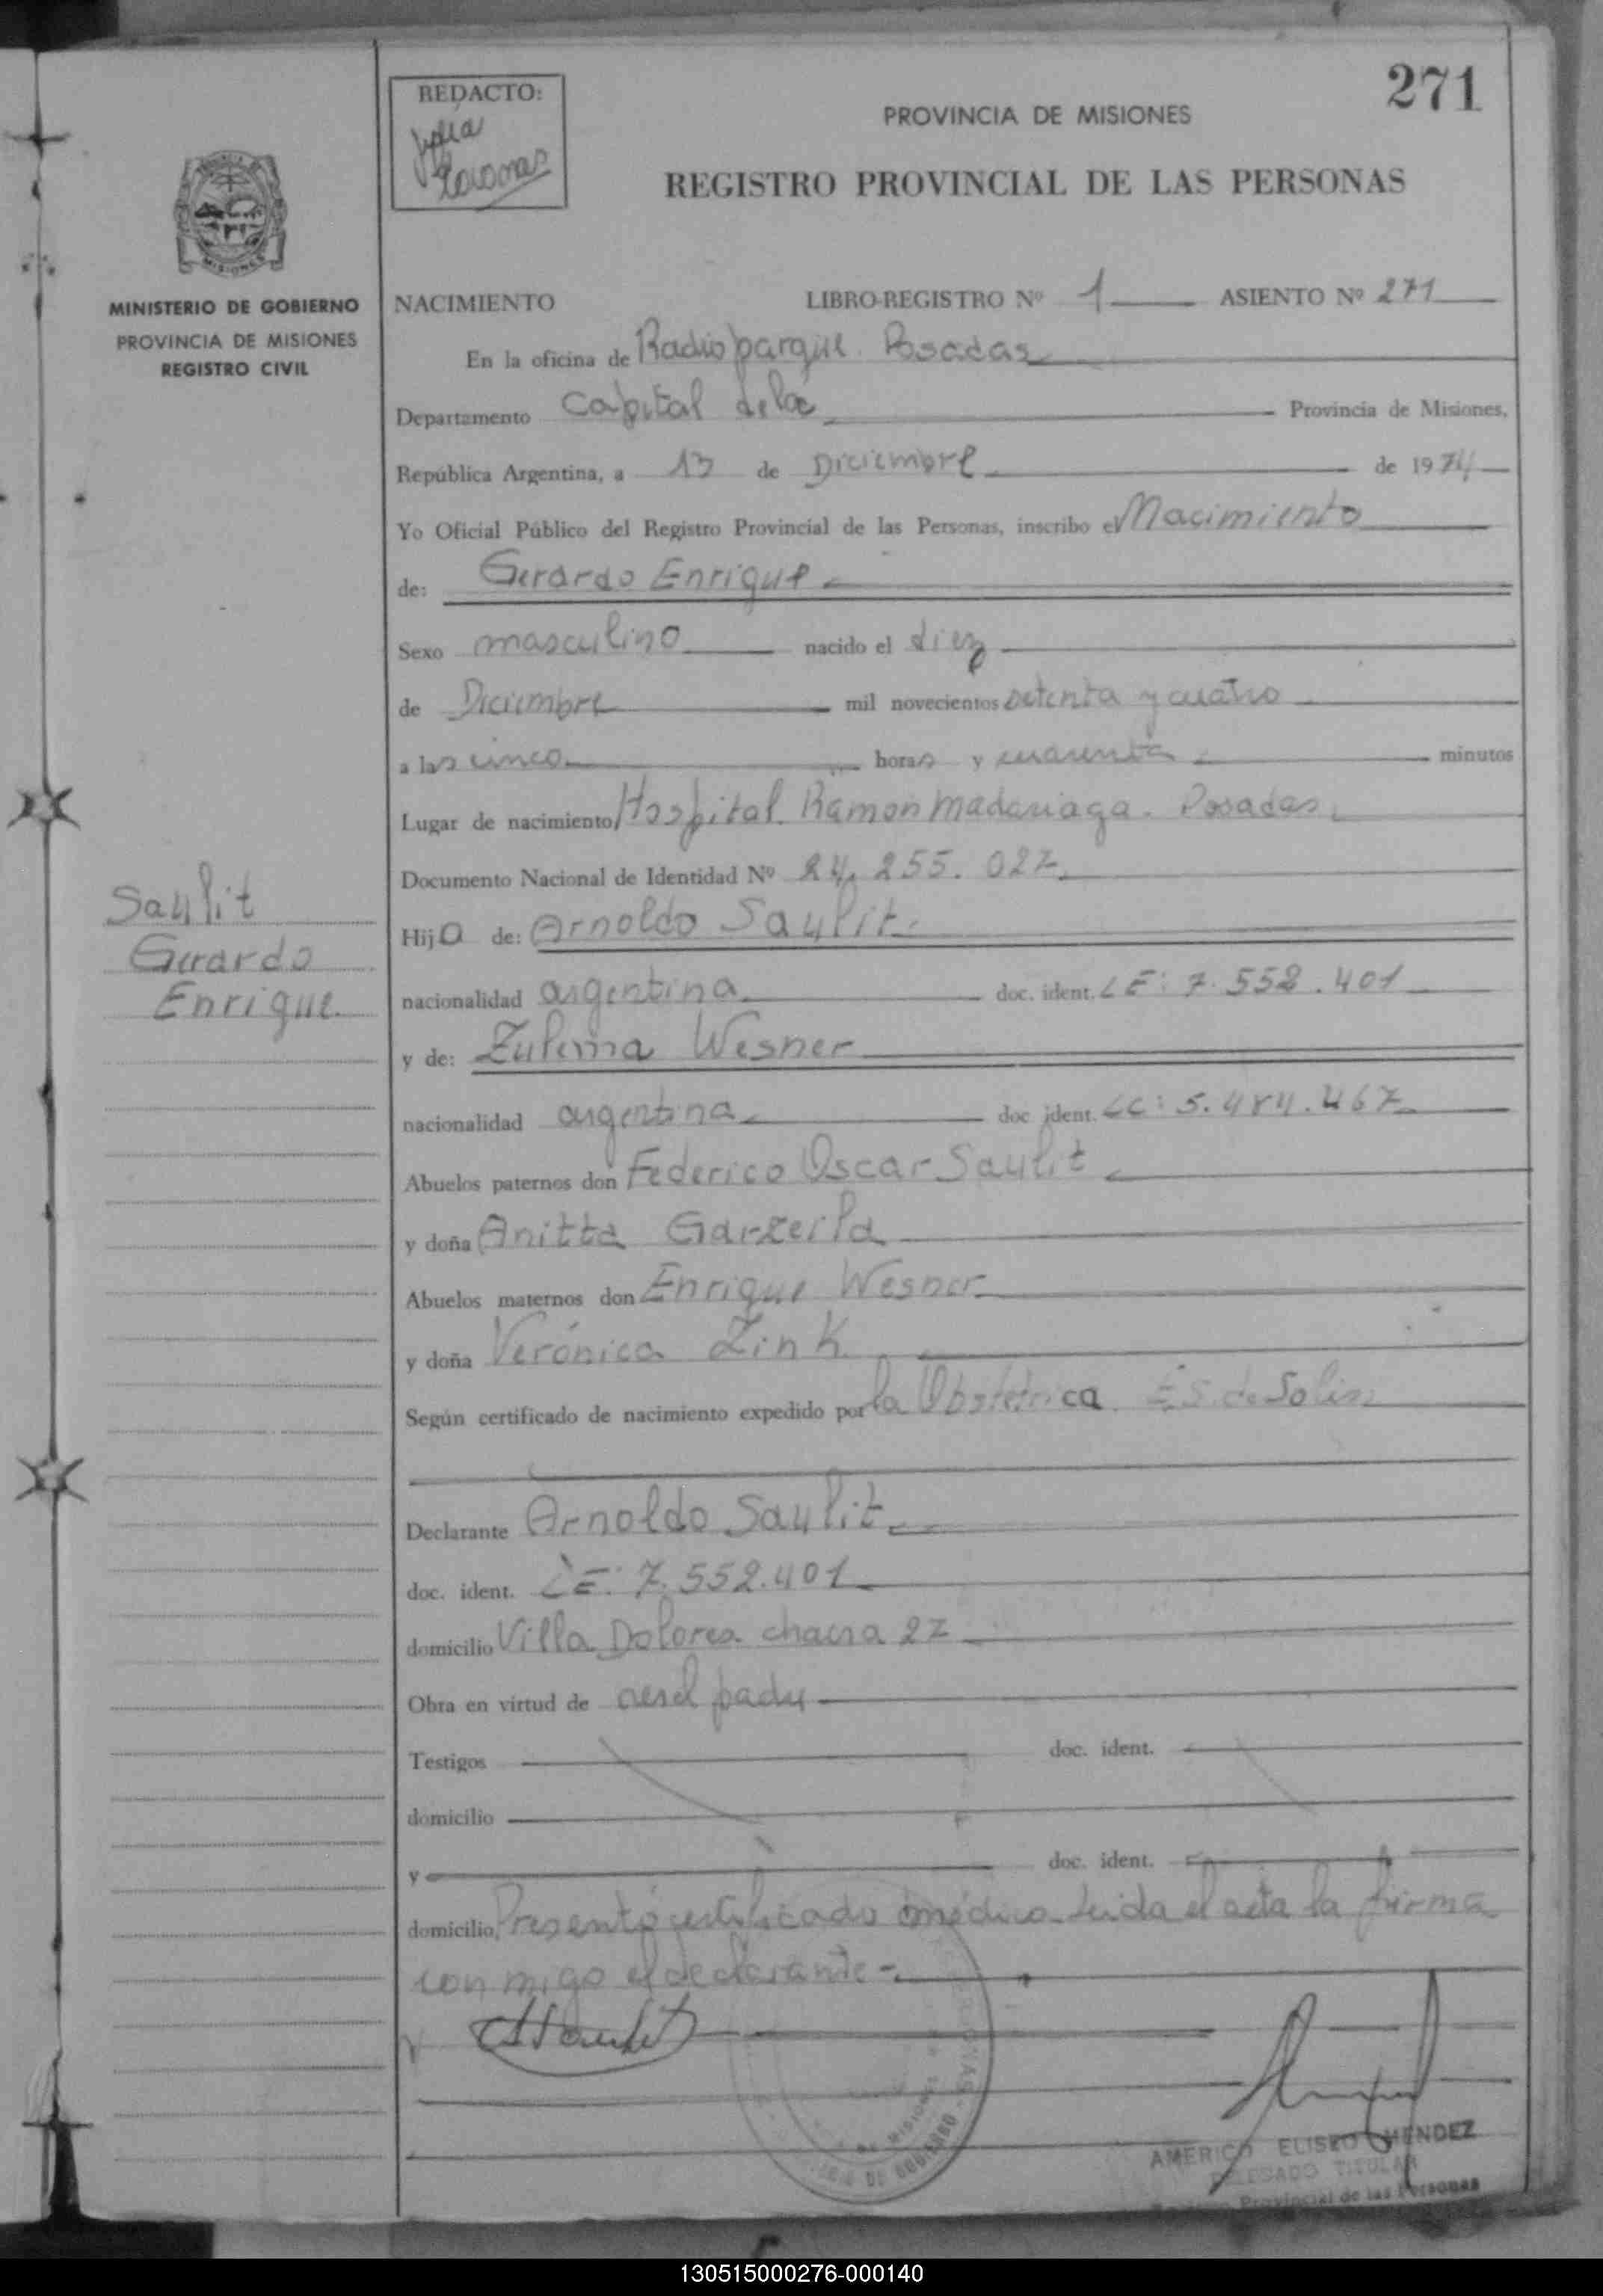 271
REDACTO:
PROVINCIA DE MISIONES
REGISTRO PROVINCIAL DE LAS PERSONAS
MISIONES
MINISTERIO DE GOBIERNO
PROVINCIA DE MISIONES
REGISTRO CIVIL
NACIMIENTO LIBRO-REGISTRO Nº 1 ASIENTO Nº 271
En la oficina de Radioparque Posadas
Departamento Capital de la Provincia de Misiones,
República Argentina, a 13 de Diciembre de 1974
Yo Oficial Público del Registro Provincial de las Personas, inscribo el Nacimiento
de: Gerardo Enrique
Sexo masculino nacido el diez
de Diciembre mil novecientos setenta y cuatro
a las cinco horas y cuarenta minutos
Lugar de nacimiento Hospital Ramon Madariaga. Posadas
Documento Nacional de Identidad Nº 24.255.027
Saulit
Gerardo
Enrique
Hijo de: Arnoldo Saulit
nacionalidad argentina doc. ident. LE: 7.552.401
y de: Zulema Wesner
nacionalidad argentina doc ident. LC: 5.484.467
Abuelos paternos don Federico Oscar Saulit
y doña Anitta Garzeila
Abuelos maternos don Enrique Wesner
y doña Verónica Zink
Según certificado de nacimiento expedido por la Obstetrica E.S. de Solis
Declarante Arnoldo Saulit
doc. ident. LE: 7.552.401
domicilio Villa Dolores chacra 27
Obra en virtud de ser el padre
Testigos doc. ident.
domicilio
y doc. ident.
domicilio, Presentó certificado médico Leida el acta la firma
con migo el declarante-.
AMERICO ELISEO MENDEZ
DELEGADO TITULAR
Provincial de las Personas
130515000276-000140